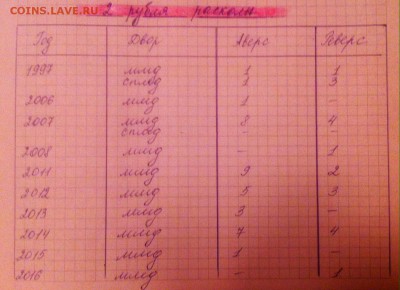 COINS.LAVE.RU
2 рубля расколы
Год Двор Аверс Реверс
1997 ммд 1 1
спмд 1 3
2006 ммд 1 -
2007 ммд 8 4
спмд - -
2008 ммд - 1
2011 ммд 9 2
2012 ммд 5 3
2013 ммд 3 -
2014 ммд 7 4
2015 ммд 1 -
2016 ммд - 1